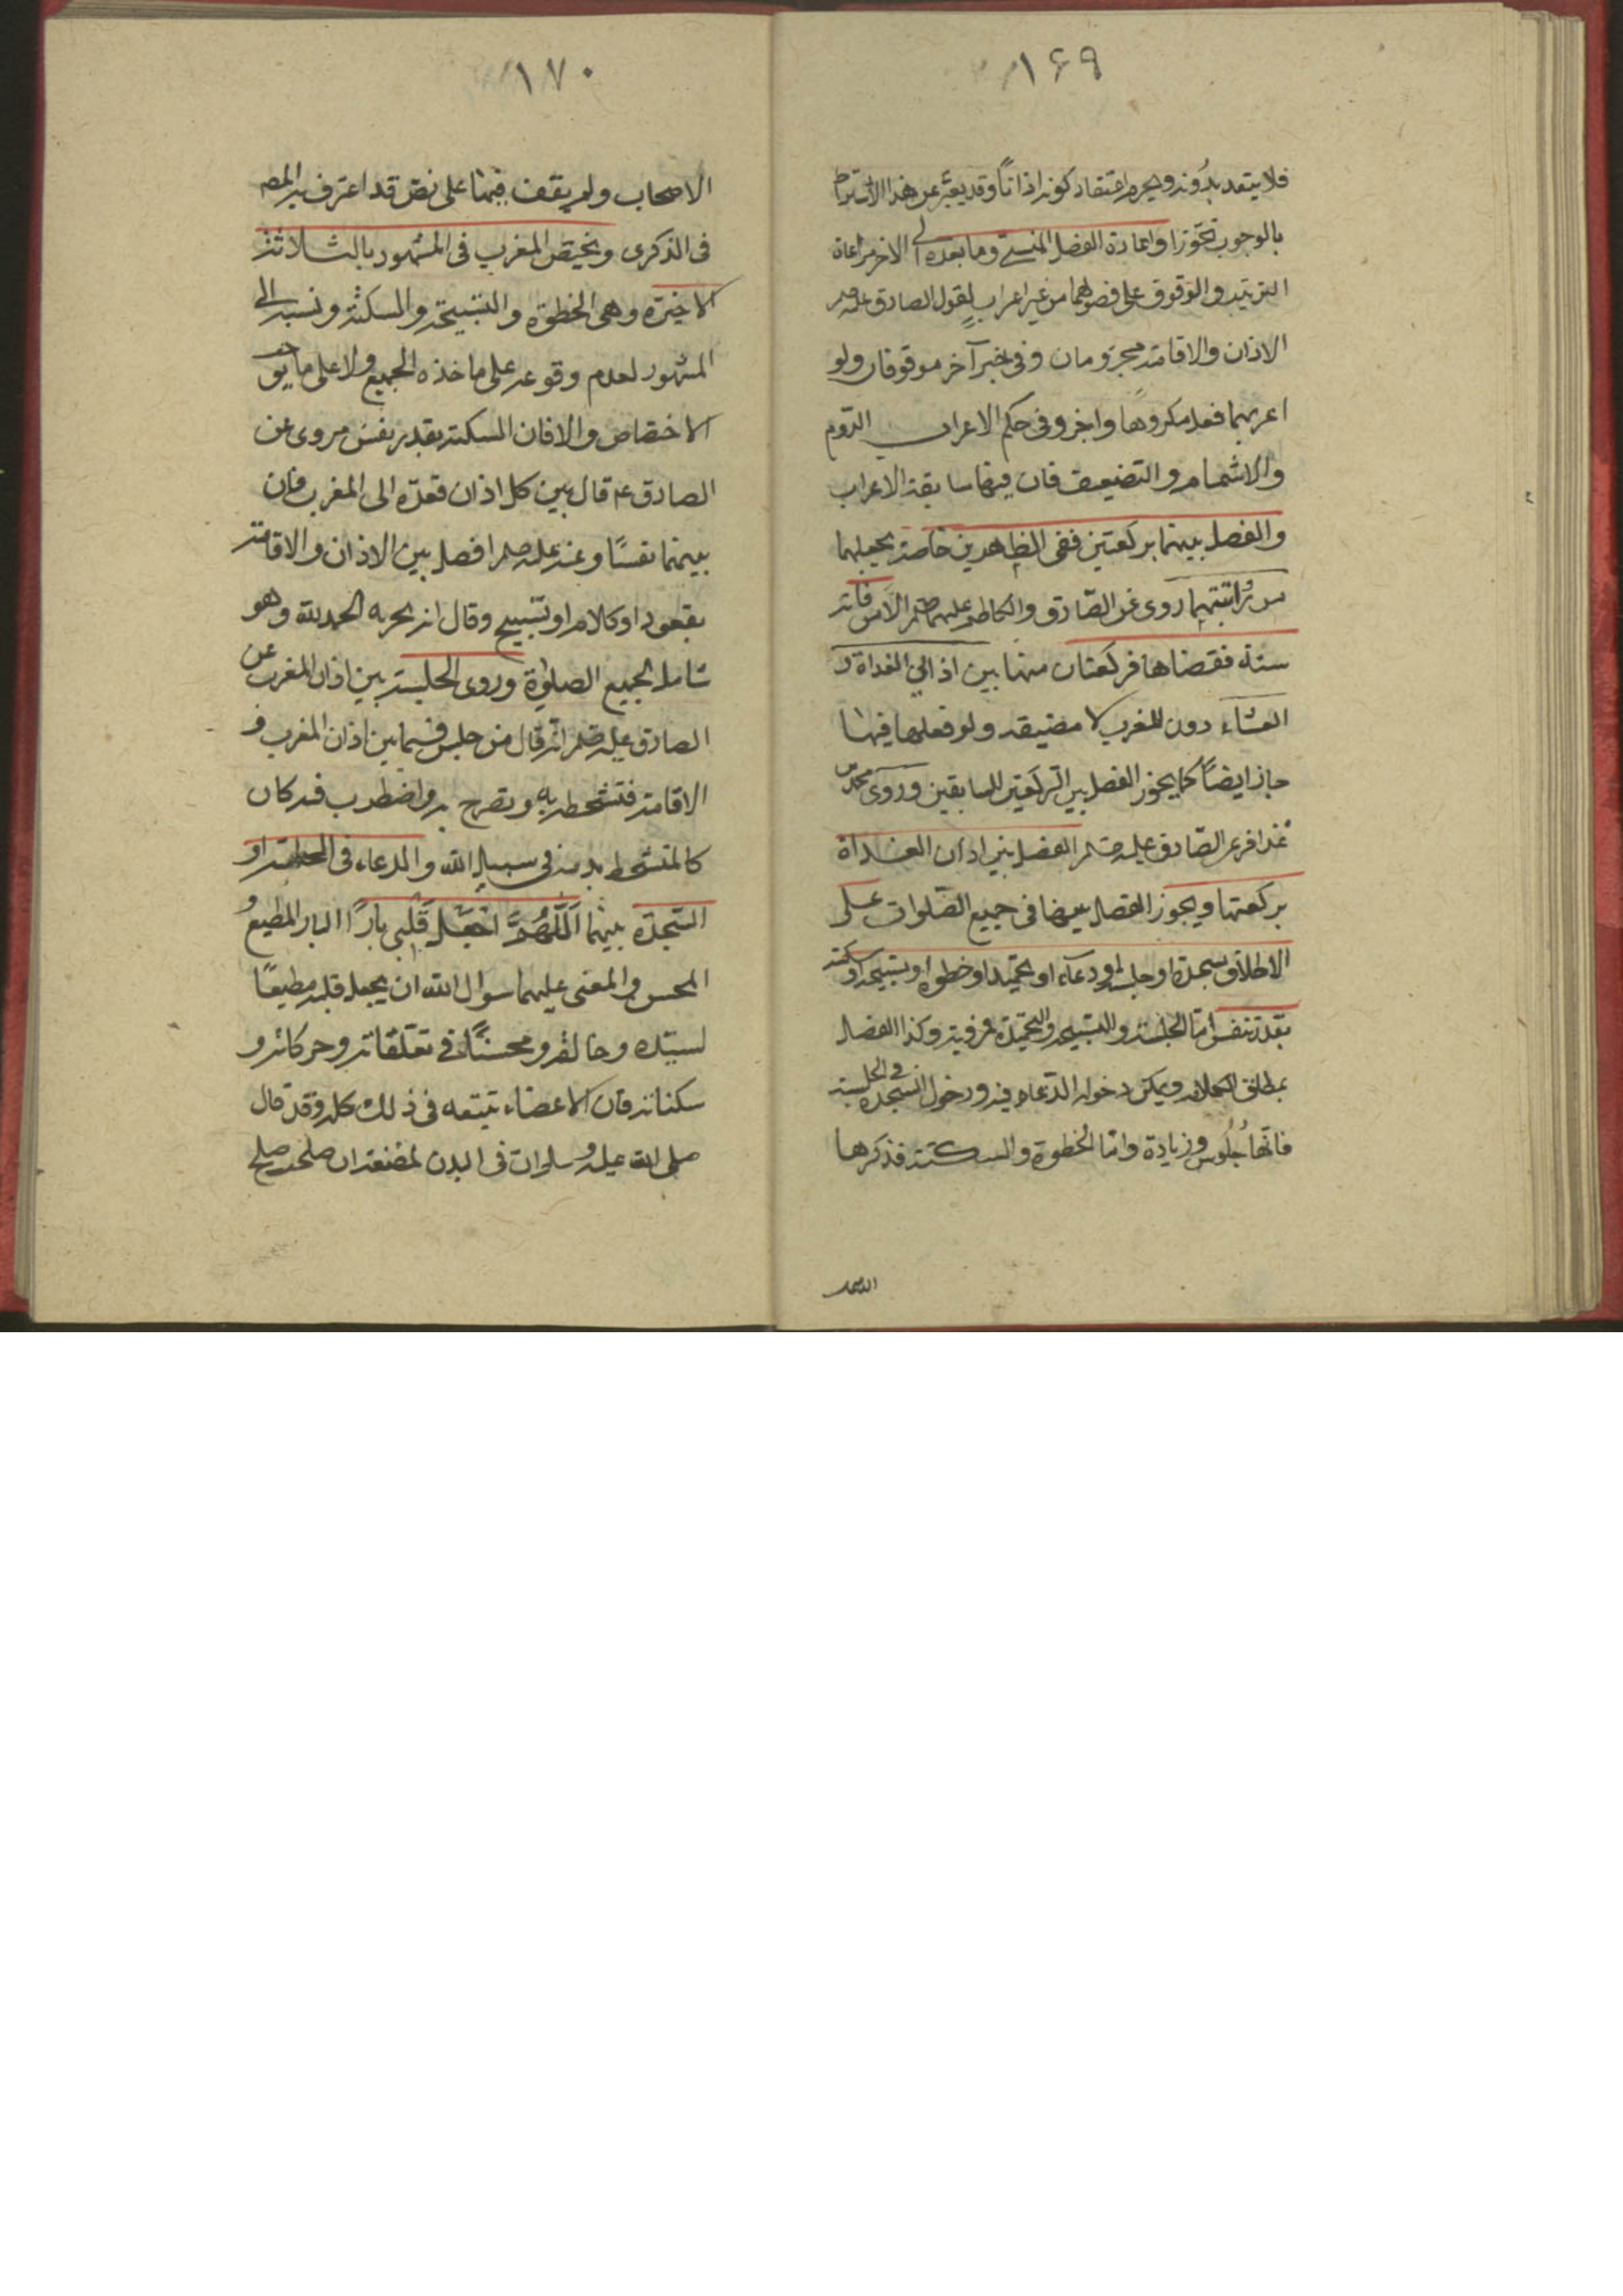 ۱۶۹
فلا يتعد بدونه ويحرم اعتقاد كونه اذانًا وقد يعبّر عن هذا الاشتراط
بالوجوب تجوّزا واعادة الفصل المنسيّ وما بعده الى الاخر مراعاة
الترتيب والوقوف على فصولهما من غير اعراب لقول الصادق علم
الاذان والاقامة مجزومان وفى خبر آخر موقوفان ولو
اعربهما فعل مكروهًا واجزء وفى حكم الاعراب الرّوم
والاشمام والتضعيف فان فيها سابقة الاعراب
والفصل بينهما بركعتين ففى الظهرين خاصة يجعلهما
من راتبتهما روى عن الصّادق والكاظم عليهما الامن فاته
سنة فقضاها فركعتان منها بين اذانى الغداة و
العشاء دون المغرب لا مضيقه ولو فعلها فيها
جاز ايضًا كما يجوز الفصل بين الركعتين السابقين وروى محمد بن
عذافر عن الصّادق عليه الفصل بين اذان الغداة
بركعتها ويجوز الفصل بعضها فى جميع الصّلوات على
الاطلاق بسجدة او جلسة او دعاء او تحميد او خطوة او تسبيحة او سكتة
بقدر تنفس امّا الجلسة والتسبيحة والتحميدة مروية وكذا الفصل
بمطلق الكلام ويمكن دخول الدّعاء فيه ودخول السجدة فى الجلسة
فانّها جُلُوس وزيادة وامّا الخطوة والسكتة فذكرها
الاصحاب
۱۷۰
الاصحاب ولم يقف فيها على نصّ قد اعترف به المصـ
فى الذكرى ويختصّ المغرب فى المشهور بالثلاثة
الاخيرة وهى الخطوة والتسبيحة والسكتة ونسبه الى
المشهور لعدم وقوعه على ماخذه الجميع ولا على ما يوجب
الاختصاص والا فان السكتة بقدر نفس مروى عن
الصادق ع قال بين كل اذان قعدة الى المغرب فان
بينهما نفسًا وعنه علم افصل بين الاذان والاقامة
بقعود او كلام او تسبيح وقال انه يجزيه الحمد لله وهو
شامل لجميع الصلوة وروى الجلسة بين اذان المغرب عن
الصادق عليه انه قال من جلس فيما بين اذان المغرب و
الاقامة فتشحط به وتضرج به واضطرب فيه كان
كالمتشحط بدمه فى سبيل الله والدعاء فى الجلسة او
السّجدة بينهما اَللّهُمَّ اجْعَلْ قَلْبى بارًّا البار المطيع و
المحسن والمعنى عليهما سوال الله ان يجعل قلبه مطيعًا
لسيّده وخالقه ومحسنًا فى تعلّقاته وحركاته و
سكناته فان الاعضاء تتبعه فى ذلك كله وقد قال
صلى الله عليه وسلم ان فى البدن لمضغة ان صلحت صلح